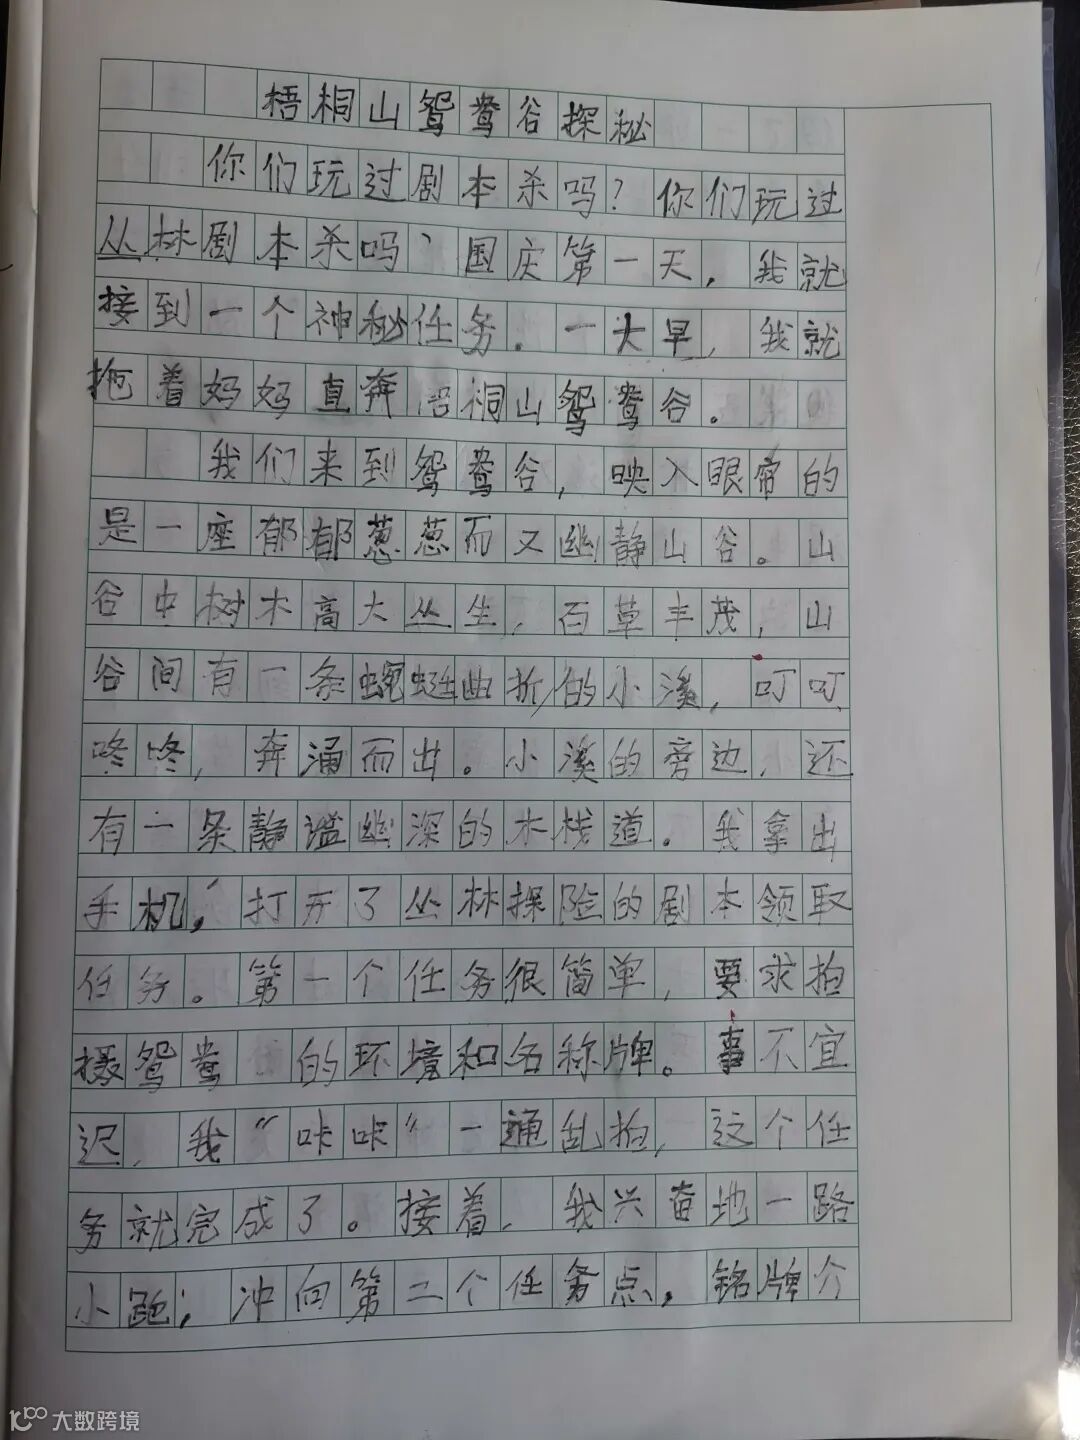 梧桐山鸳鸯谷探秘
你们玩过剧本杀吗？你们玩过
丛林剧本杀吗？国庆第一天，我就
接到一个神秘任务。一大早，我就
拖着妈妈直奔梧桐山鸳鸯谷。
我们来到鸳鸯谷，映入眼帘的
是一座郁郁葱葱而又幽静山谷。山
谷中树木高大丛生，百草丰茂，山
谷间有一条蜿蜒曲折的小溪，叮叮
咚咚，奔涌而出。小溪的旁边，还
有一条静谧幽深的木栈道。我拿出
手机，打开了丛林探险的剧本领取
任务。第一个任务很简单，要求拍
摄鸳鸯的环境和名称牌。事不宜
迟，我“咔咔”一通乱拍，这个任
务就完成了。接着，我兴奋地一路
小跑，冲向第二个任务点，铭牌介
大数跨境